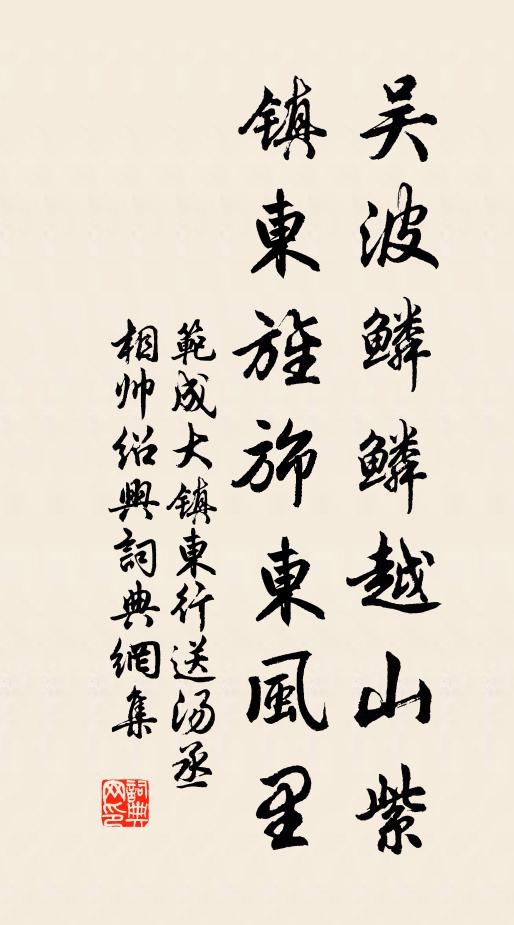 吴波鳞鳞越山紫
镇東旌旆東風里
範成大镇東行送汤丞
相帅绍興詞典網集
詞典网印